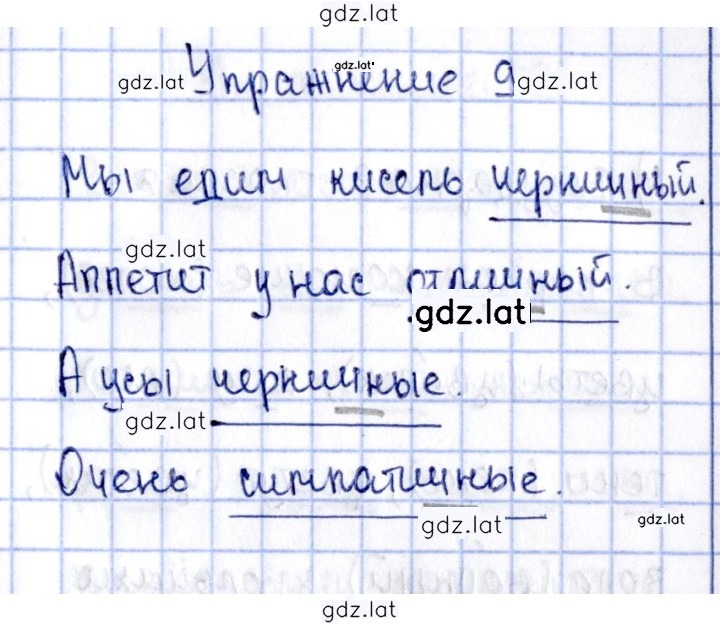 gdz.lat
gdz.lat
gdz.lat
Упражнение 9
gdz.lat
Мы едим кисель черничный.
gdz.lat
Аппетит у нас отличный.
gdz.lat
А усы черничные.
gdz.lat
Очень симпатичные.
gdz.lat
gdz.lat
gdz.lat